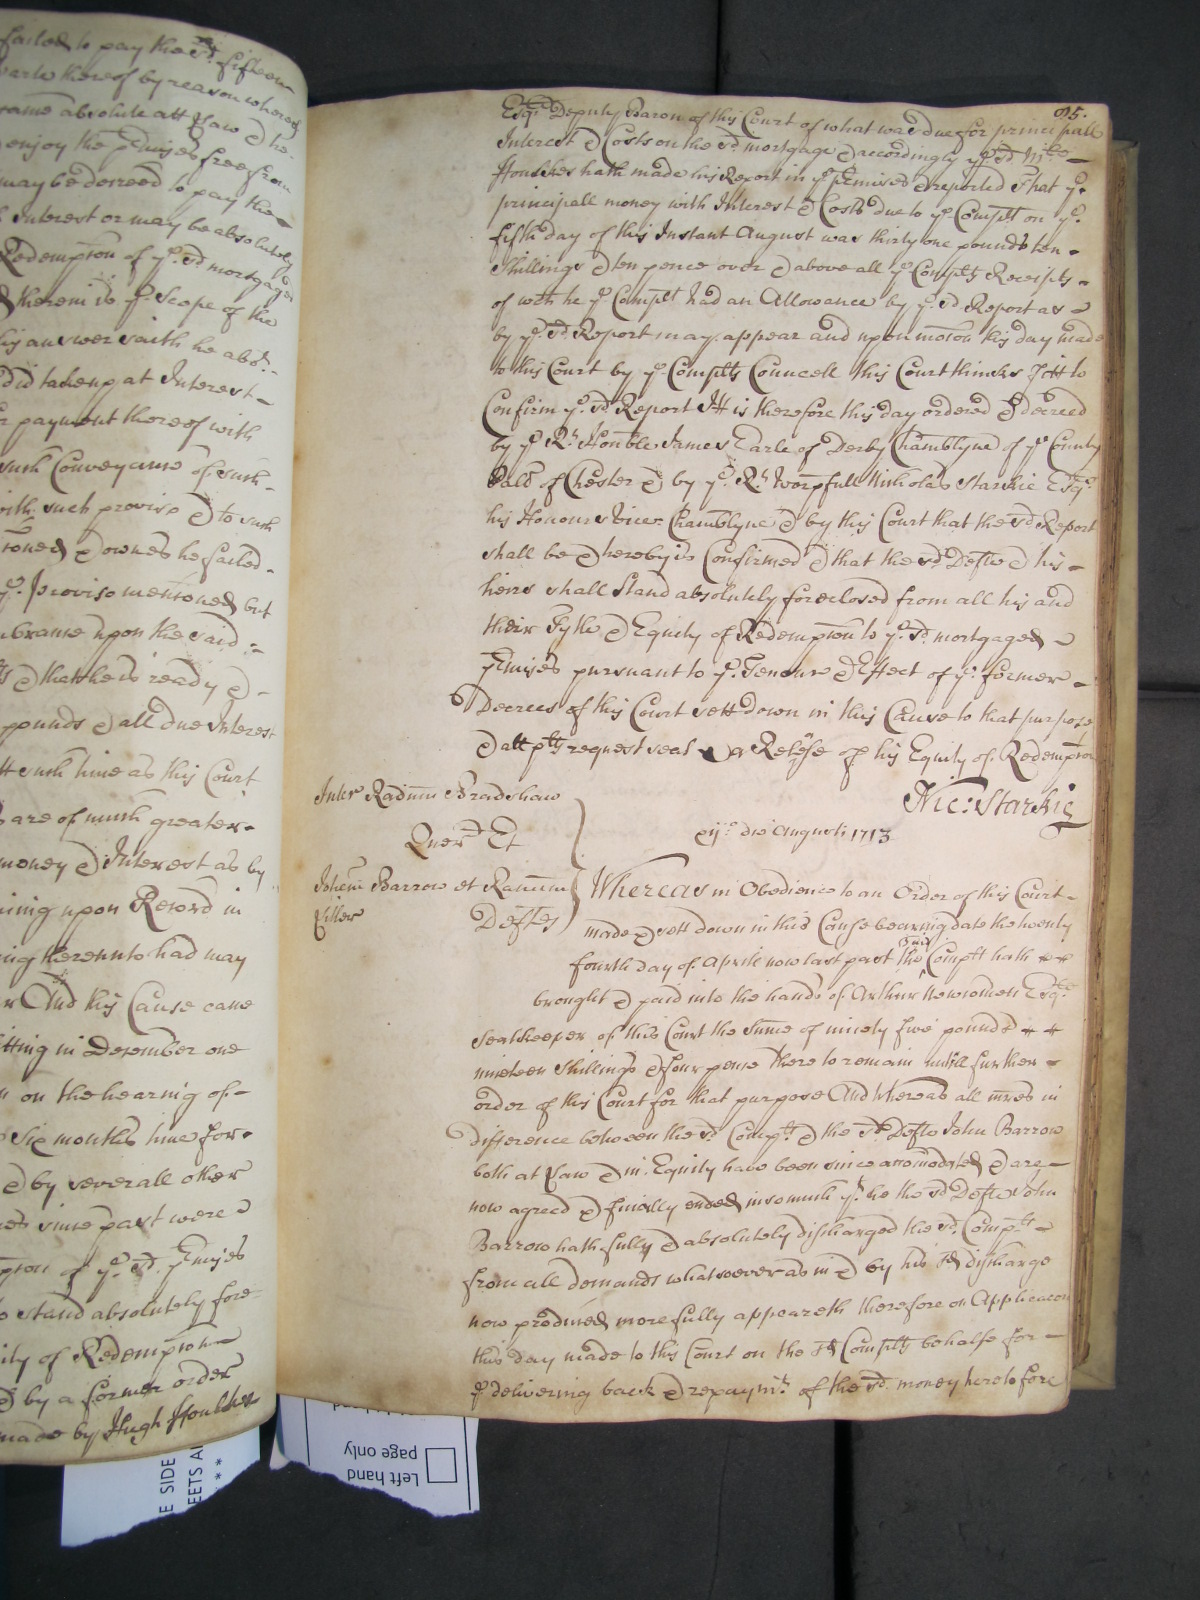 failed to pay the sd. fifteen
parte thereof by reason whereof
came absolute att Law & he
enjoy the p'mises free from
may be decreed to pay the
Interest or may be absolutely
Redemption of ye. sd. mortgaged
& therein is ye. Scope of the
his answer saith he abt.
did take up at Interest
payment thereof with
such Conveyance of such
with such proviso & to such
& ownes he failed
ye. Proviso mentioned but
became upon the said
& that he is ready &
pounds & all due Interest
att such time as this Court
are of much greater
money & Interest as by
upon Record in
thereunto had may
And this Cause came
sitting in December one
on the hearing of
Six months time for
& by severall other
since past were
of ye. sd. p'mises
to stand absolutely fore
ity of Redemption
& by a former order
made by Hugh ffoulkes
95.
Esqr. Deputy Baron of this Court of what was due for principall
Interest & Costs on the sd. mortgage & accordingly ye. sd. Mr.
ffoulkes hath made his Report in ye. p'mises & reported That ye.
principall money with Interest & Costs due to ye. Complt on ye.
fifth day of this Instant August was thirty one pounds ten
shillings & ten pence over & above all ye. Complts Receipts
of wch he ye. Complt had an Allowance by ye. sd. Report as
by ye. sd. Report may appear and upon motion this day made
to this Court by ye. Complts Councell this Court thinkes fitt to
Confirm ye. sd. Report Itt is therefore this day ordered & decreed
by ye. Rt. Honble. James Earle of Derby Chamblyne of ye. County
Pald. of Chester & by ye. Rt. Worpfull Nicholas Starkie Esqr.
his Honours Vice Chamblyne & by this Court that the sd. Report
shall be & hereby is Confirmed & that the sd. Defte & his
heirs shall Stand absolutely foreclosed from all his and
their Tytle & Equity of Redemption to ye. sd. mortgaged
p'mises pursuant to ye. Tenour & Effect of ye. former
Decrees of this Court sett down in this Cause to that purpose
& att plts request seal a Release of his Equity of Redemption
Nic: Starkie
Inter Radum Bradshaw
Quer Et
Johem Barrow et Ranum
Killer
Deftes
die Augusti 1713
Whereas in Obedience to an Order of this Court
made & sett down in this Cause bearing date the twenty
fourth day of Aprill now last past the said Complt hath
brought & paid into the hands of Arthur Newcomen Esqr.
Sealkeeper of this Court the Sume of ninety five pounds
nineteen shillings & four pence there to remain untill further
order of this Court for that purpose And Whereas all mres in
difference between the sd. Complt. & the sd. Defte John Barrow
both at Law & in Equity have been since accomodated & are
now agreed & finally ended insomuch yt. he the sd. Defte John
Barrow hath fully & absolutely discharged the sd. Complt
from all demands whatsoever as in & by his sd. discharge
now produced more fully appeareth therefore on Applicacon
this day made to this Court on the sd. Complts behalfe for
ye. delivering back & repaymt. of the sd. money heretofore
E SIDE
EETS A
**
Left hand
page only